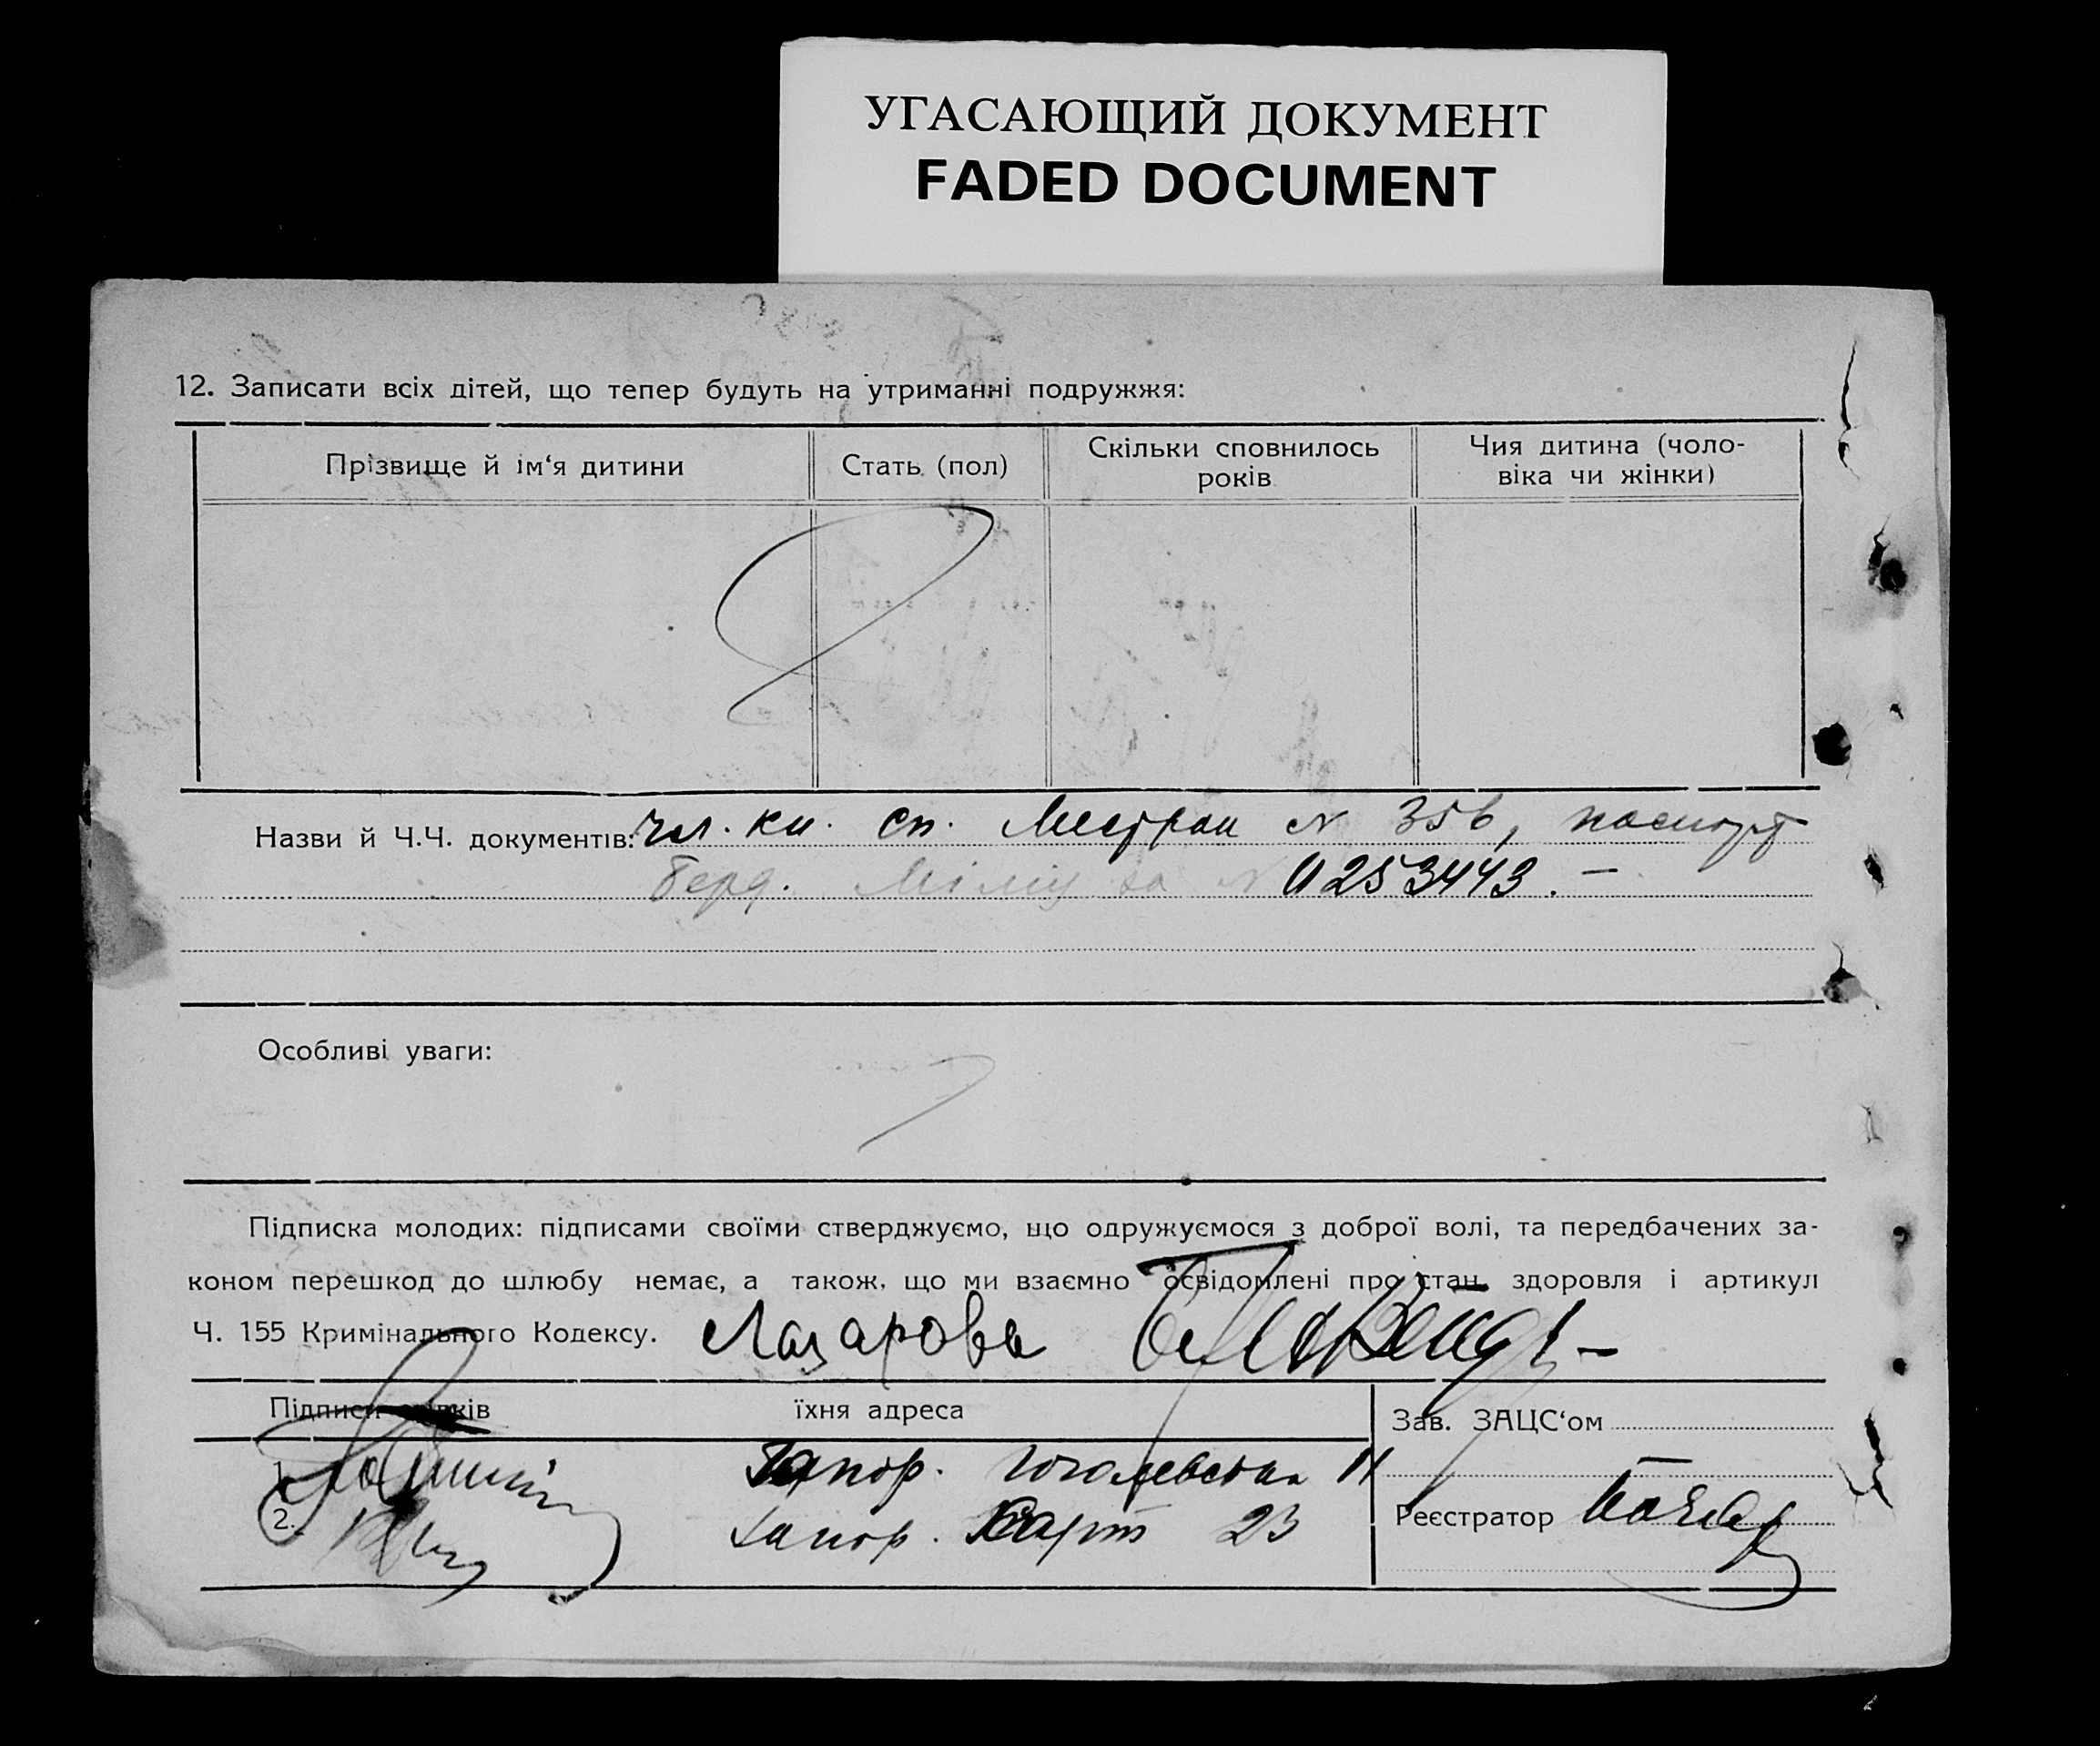 УГАСАЮЩИЙ ДОКУМЕНТ
FADED DOCUMENT
12. Записати всіх дітей, що тепер будуть на утриманні подружжя:
Прізвище й ім‘я дитини
Стать (пол)
Скільки сповнилось
років
Чия дитина (чоло-
віка чи жінки)
Назви й Ч.Ч. документів: чл. кн. сп. N 356, паспорт
Берд. N 0253443. –
Особливі уваги:
Підписка молодих: підписами своїми стверджуємо, що одружуємося з доброї волі, та передбачених за-
коном перешкод до шлюбу немає, а також, що ми взаємно освідомлені про стан здоровля і артикул
Ч. 155 Кримінального Кодексу. Лазарова
Підписи свідків
їхня адреса
Зав. ЗАЦС‘ом
1.
Запор. Гоголевская 11
2.
Запор. 23
Реєстратор